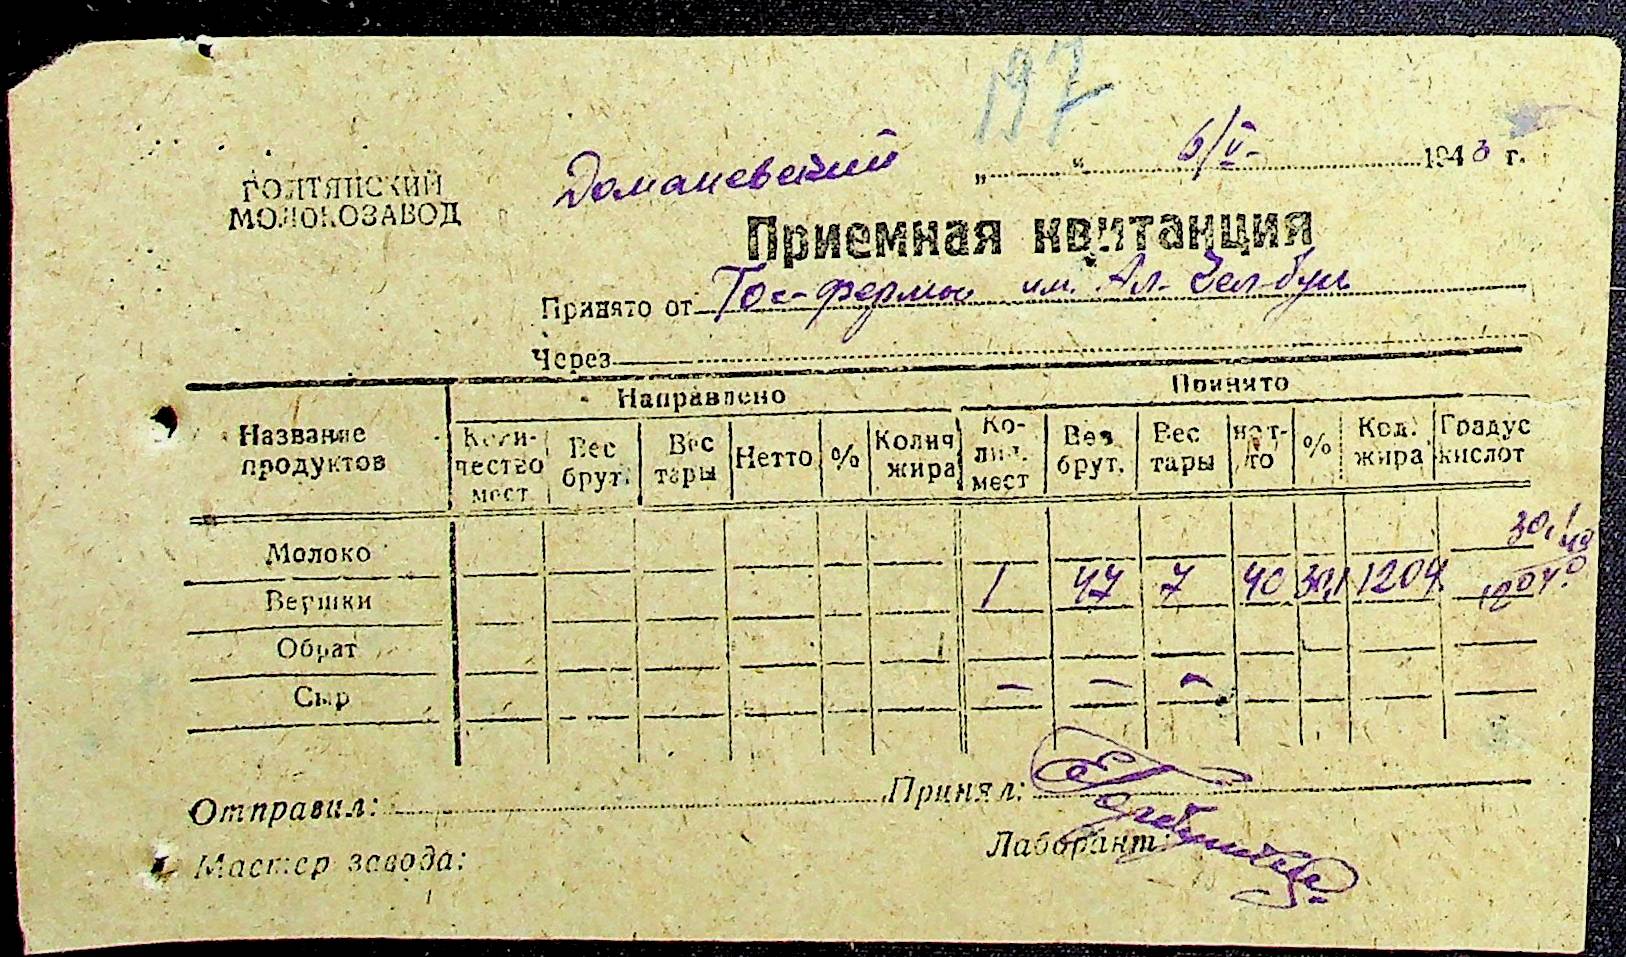 197
ГОЛТЯНСКИЙ
МОЛОКОЗАВОД
Доманевский
„ “ 6/V- 1943 г.
Приемная квитанция
Принято от Гос-фермы им. Ал.
Через
Название продуктов
Направлено
Принято
Количество мест
Вес брут.
Вес тары
Нетто
%
Колич жира
Ко-лич. мест
Вес брут.
Вес тары
нет-то
%
Кол. жира
Градус кислот
Молоко
30,1
40
1204.0
Вершки 1 47 7 40 30,1 1204
Обрат
Сыр – – –
Отправил: Принял:
Лаборант
Мастер завода: